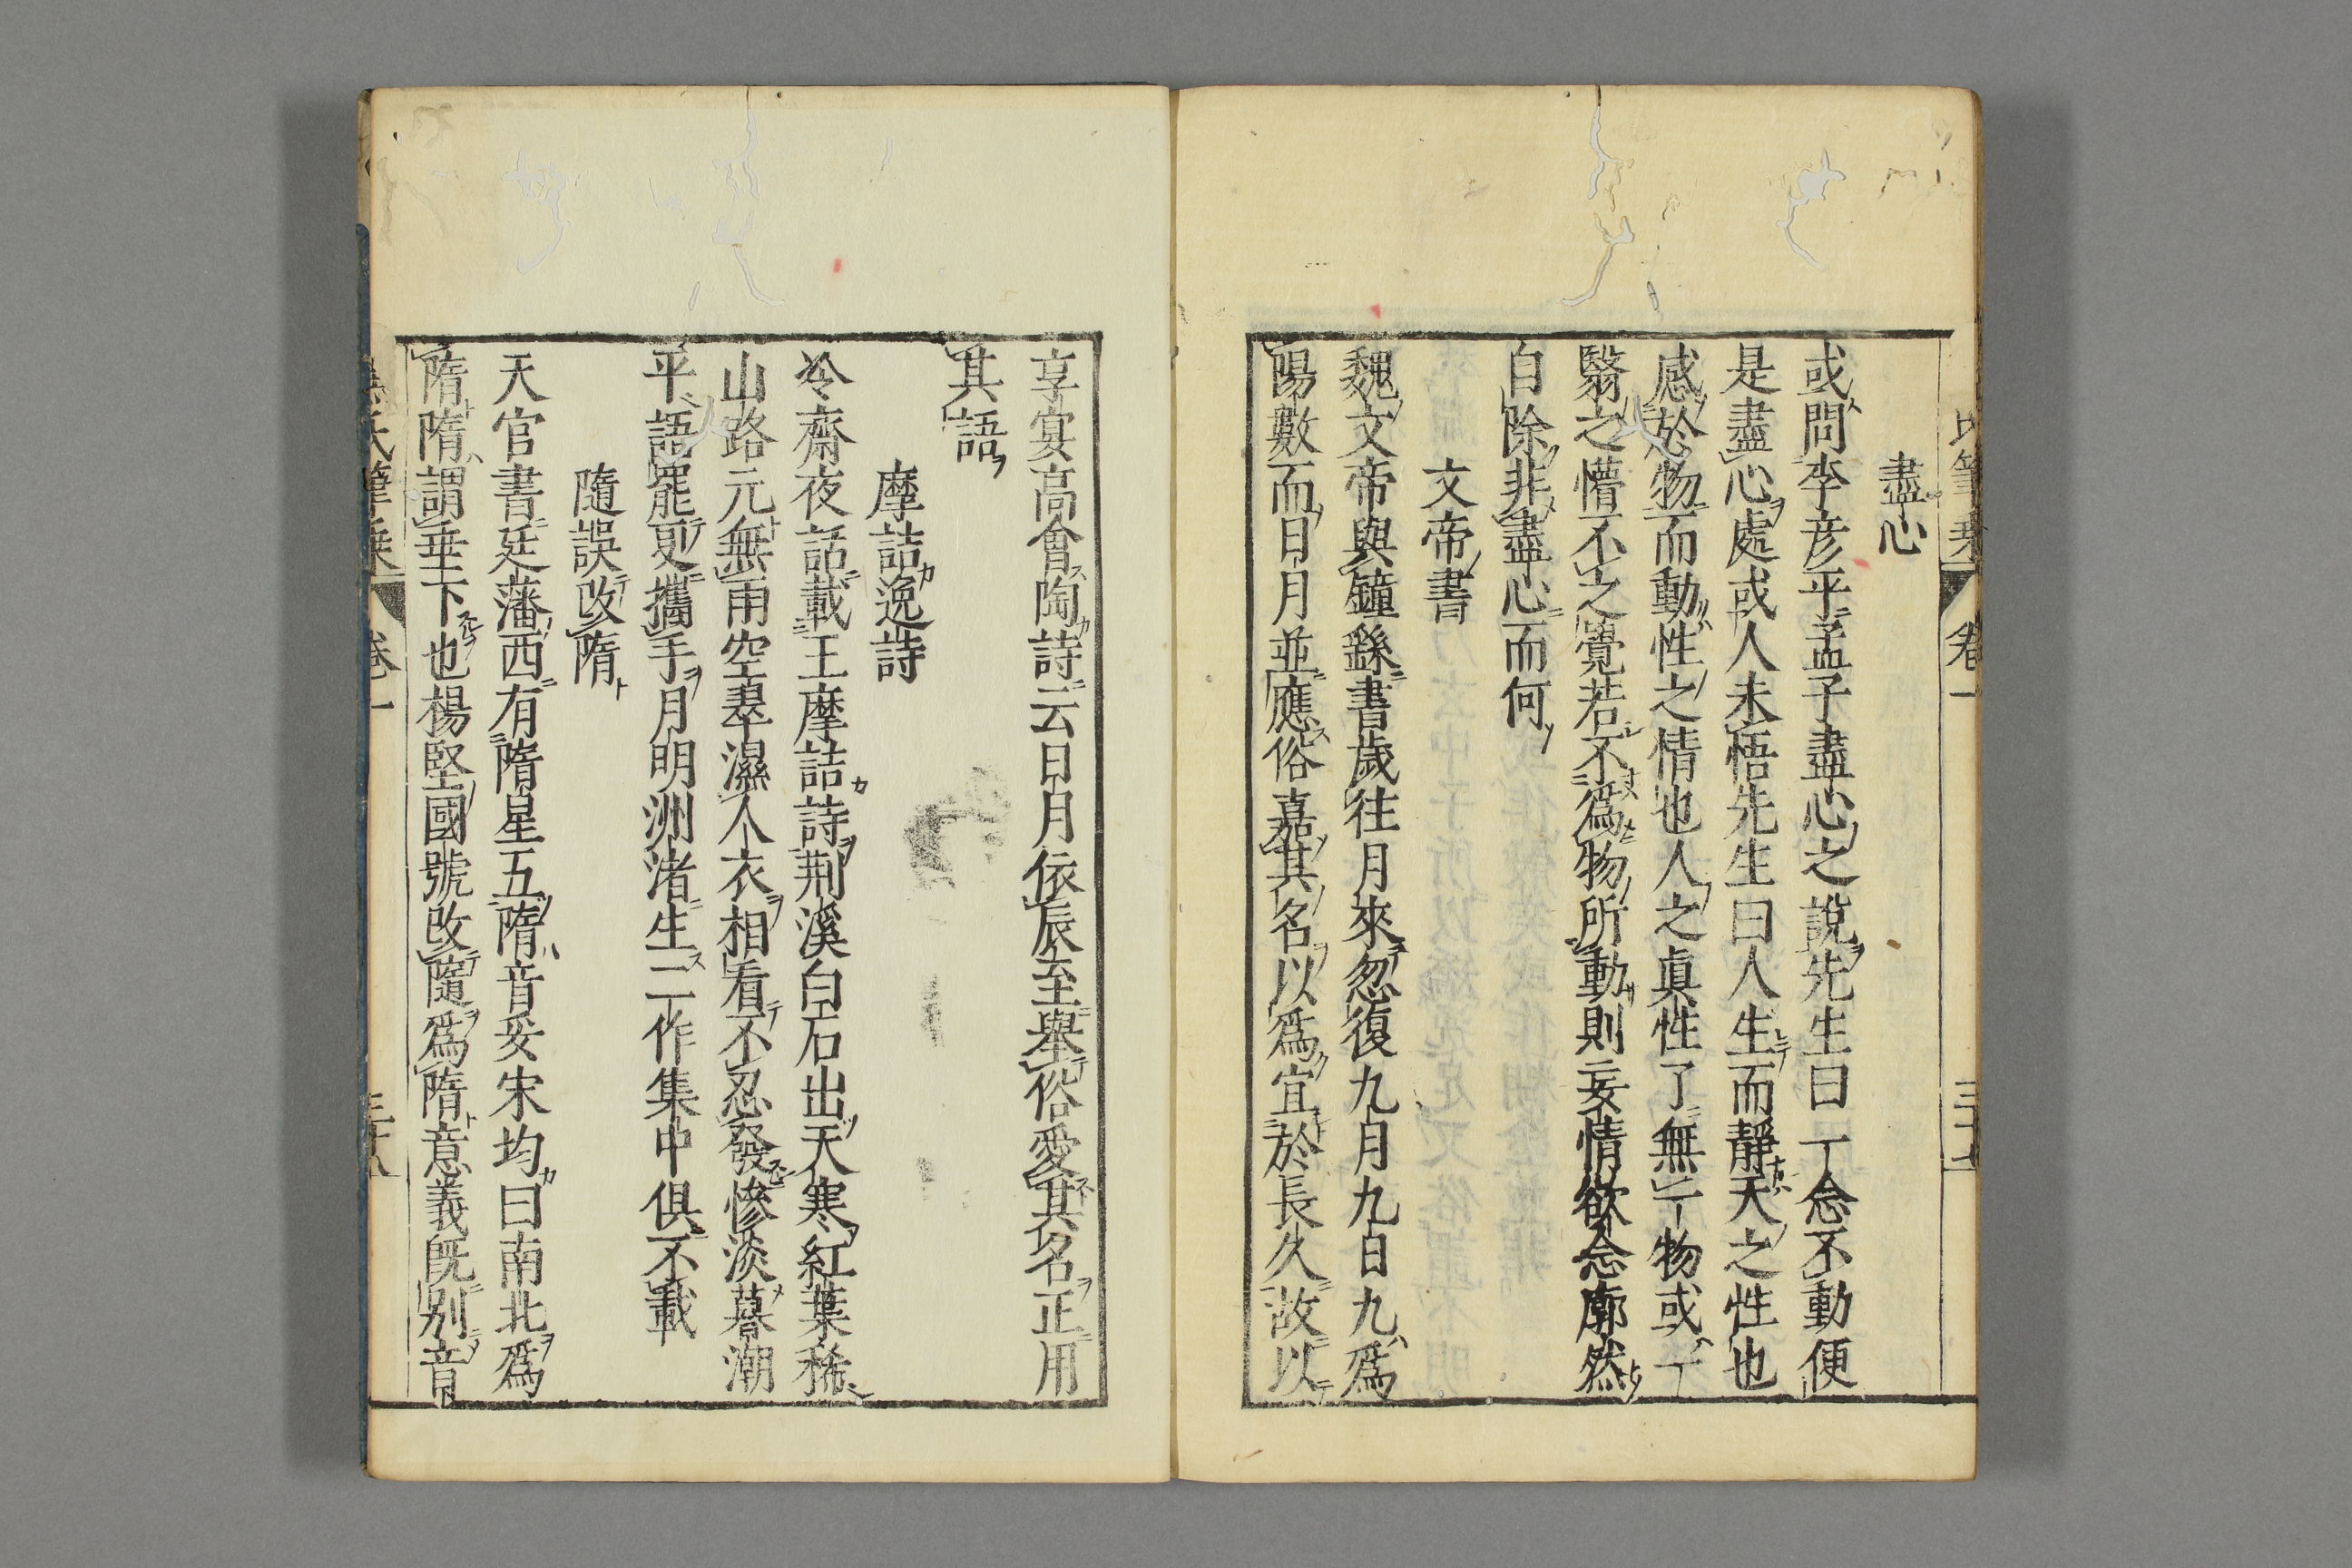 氏筆乗 卷一 三十七
盡心
或問李彦平孟子盡心之說先生曰一念不動便
是盡心處或人未悟先生曰人生而靜天之性也
感於物而動性之情也人之眞性了無一物或一
翳之懵不之覺若不爲物所動則妄情欲念廓然
自除非盡心而何
文帝書
魏文帝與鐘繇書歲往月來忽復九月九日九爲
陽數而日月並應俗嘉其名以爲宜於長久故以
享宴高會陶詩云日月依辰至舉俗愛其名正用
其語
摩詰逸詩
冷齋夜話載王摩詰詩荆溪白石出天寒紅葉稀
山路元無雨空翠濕人衣相看不忍發慘淡暮潮
平語罷更攜手月明洲渚生二作集中俱不載
隨誤改隋
天官書廷藩西有隋星五隋音妥宋均曰南北爲
隋隋謂垂下也楊堅國號改隨爲隋意義旣别音
氏筆乗 卷一 三十八